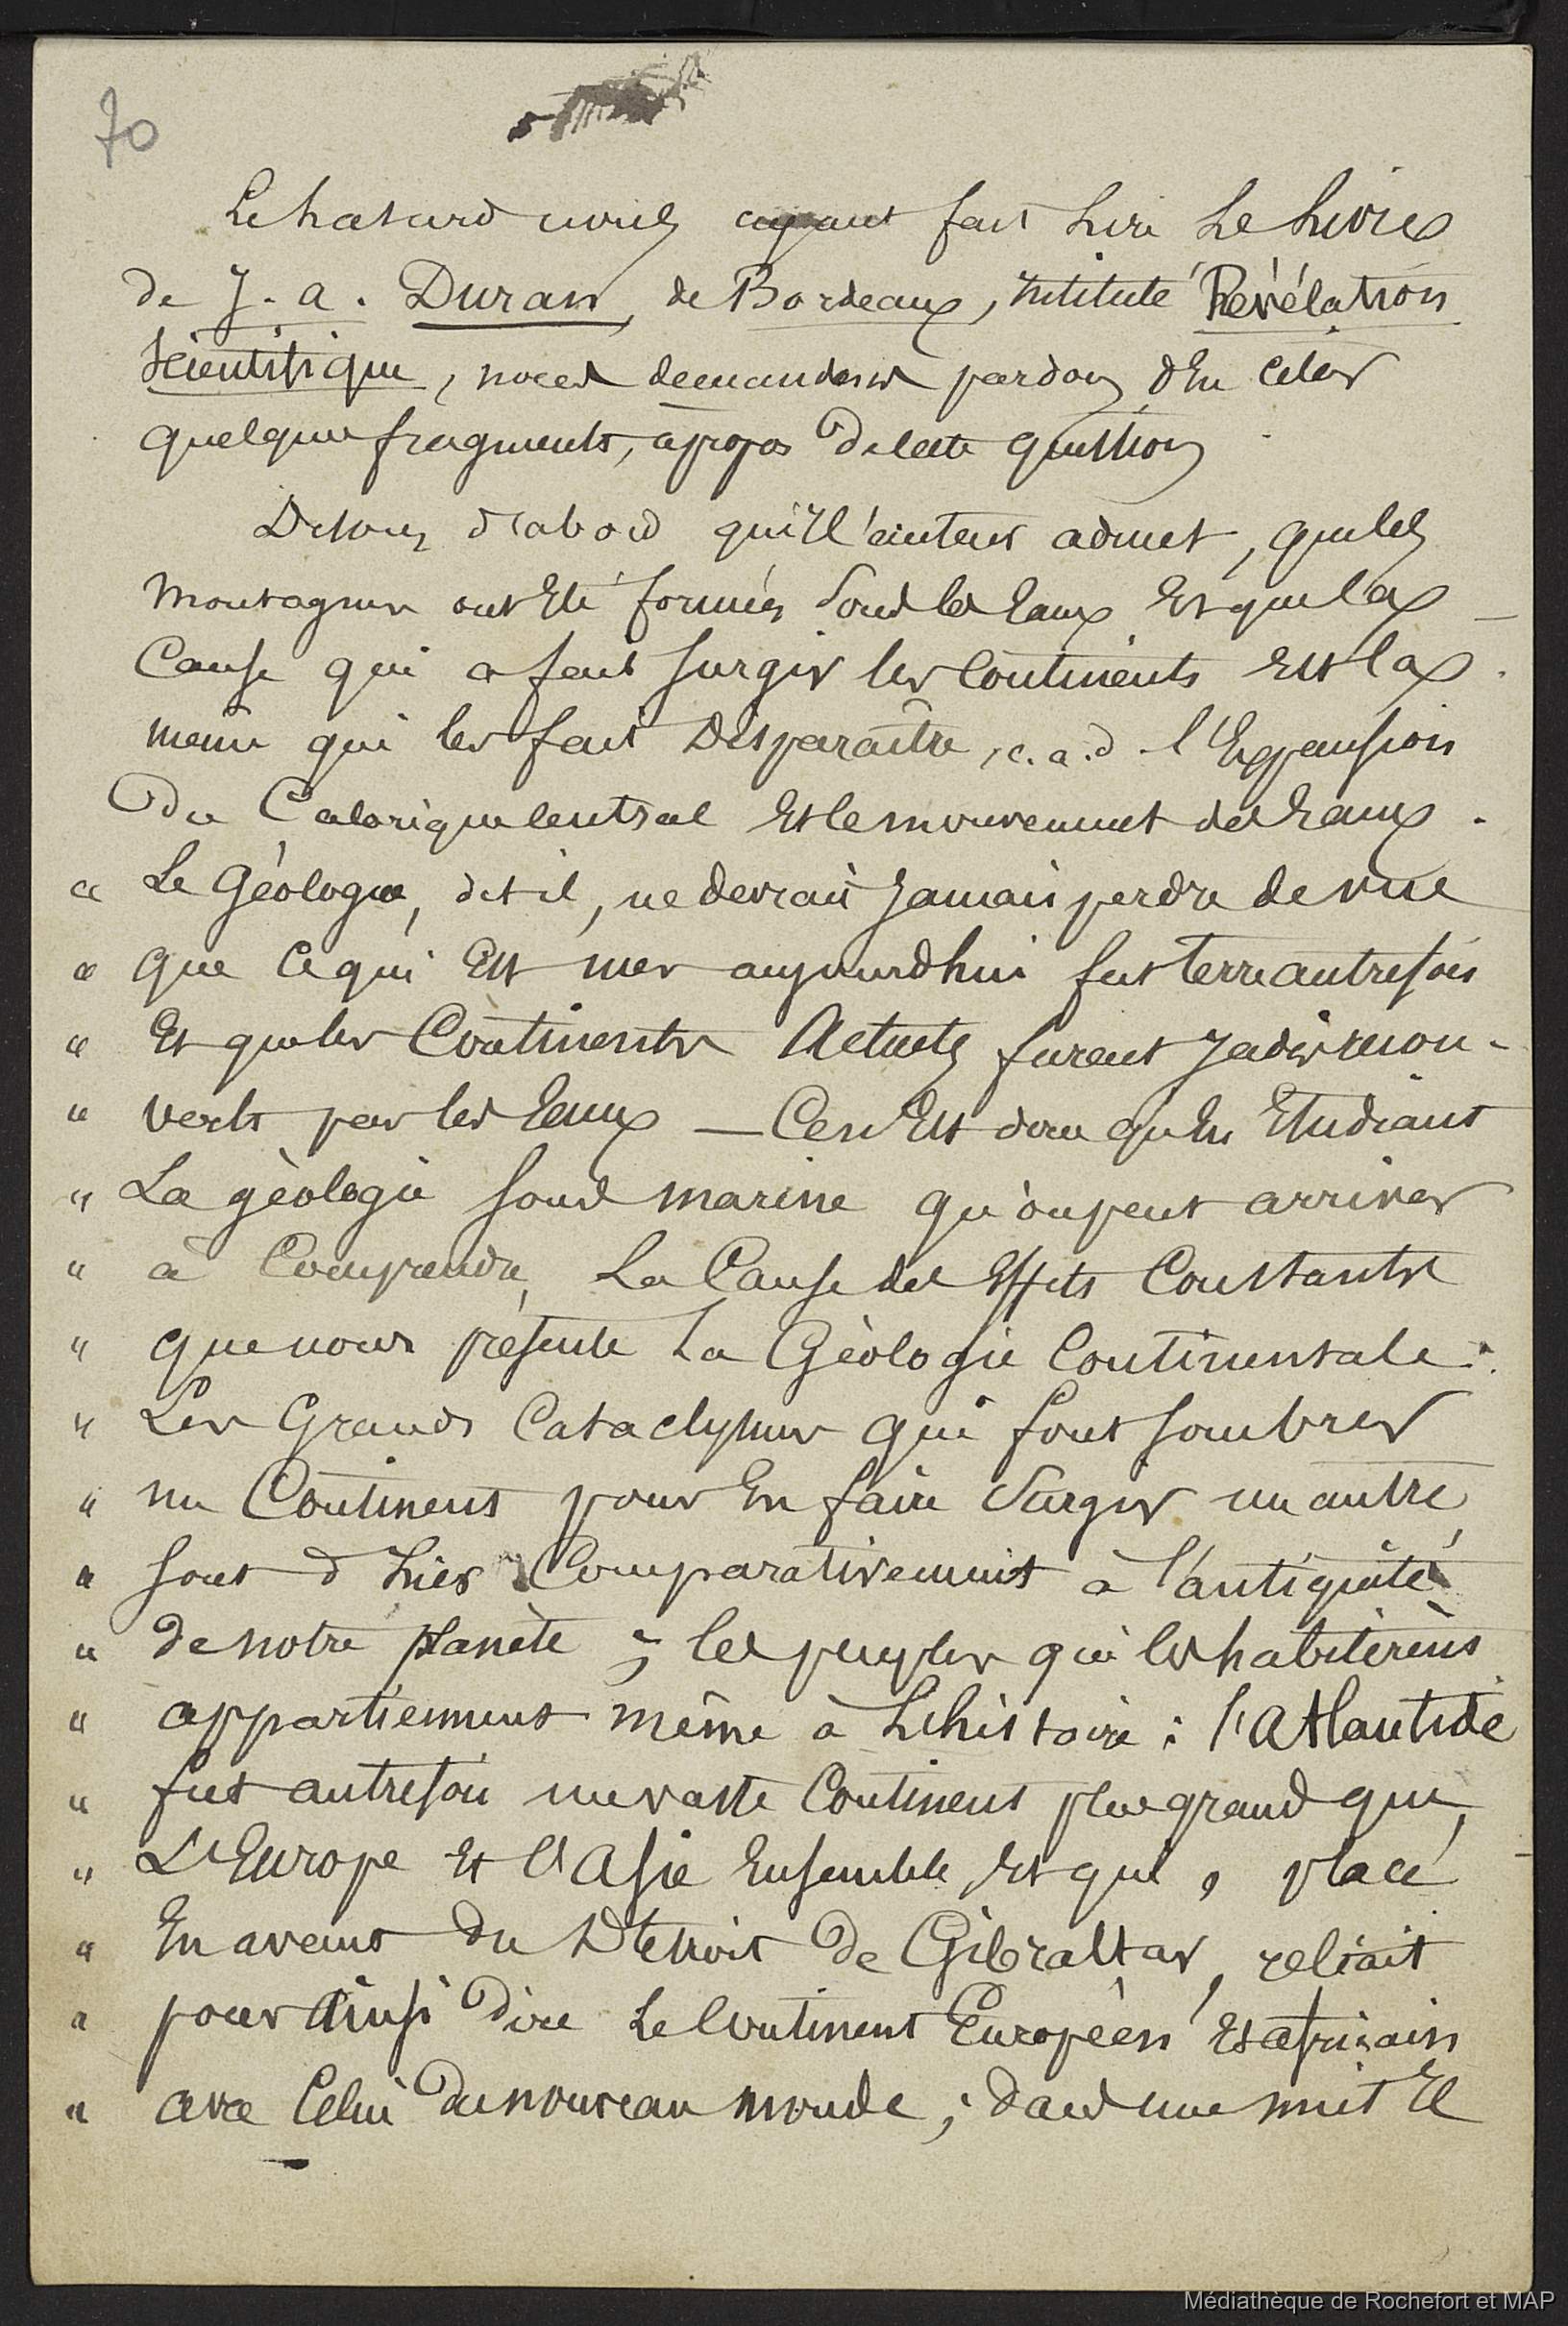 70
Le hasard nous ayant fait Lire Le Livre
de J. a. Duran, de Bordeaux, Intitulé Révélation
Scientifique, nous demandons pardon d'En citer
quelques fragments, apropos de cette question
Disons d'abord que l'auteur admet, que les
Montagnes ont Eté formées Sous les Eaux Et que la
Cause qui a fait surgir les Continents Est la
même qui les fait Disparaître, c.a.d. l'Expansion
Du Calorique Central Et le mouvement des Eaux.
" Le Géologue, dit il, ne devrait Jamais perdre de vue
" que Ce qui Est mer aujourdhui fut Terre autrefois
" Et que les Continents Actuels furent Jadis
" verts par les Eaux — Ce n'Est donc qu'En Etudiant
" La géologie sous marine qu'on peut arriver
" à Comprendre, La Cause des Effets Constants
" que nous présente La Géologie Continentale.
" Les Grands Cataclysmes qui font sombrer
" un Continent pour En faire Surgir un autre,
" sont d'hier Comparativement à l'antiquité
" de notre planète ; les peuples qui les habitèrent
" appartiennent même à L'histoire : l'Atlantide
" fut autrefois un vaste Continent plus grand que,
" L'Europe Et l'Asie Ensemble, Et qui, placé
" En avant du Détroit de Gibraltar, reliait
" pour Ainsi Dire Le Continent Européen Et africain
" avec Celui du nouveau monde ; dans une nuit Il
Médiathèque de Rochefort et MAP